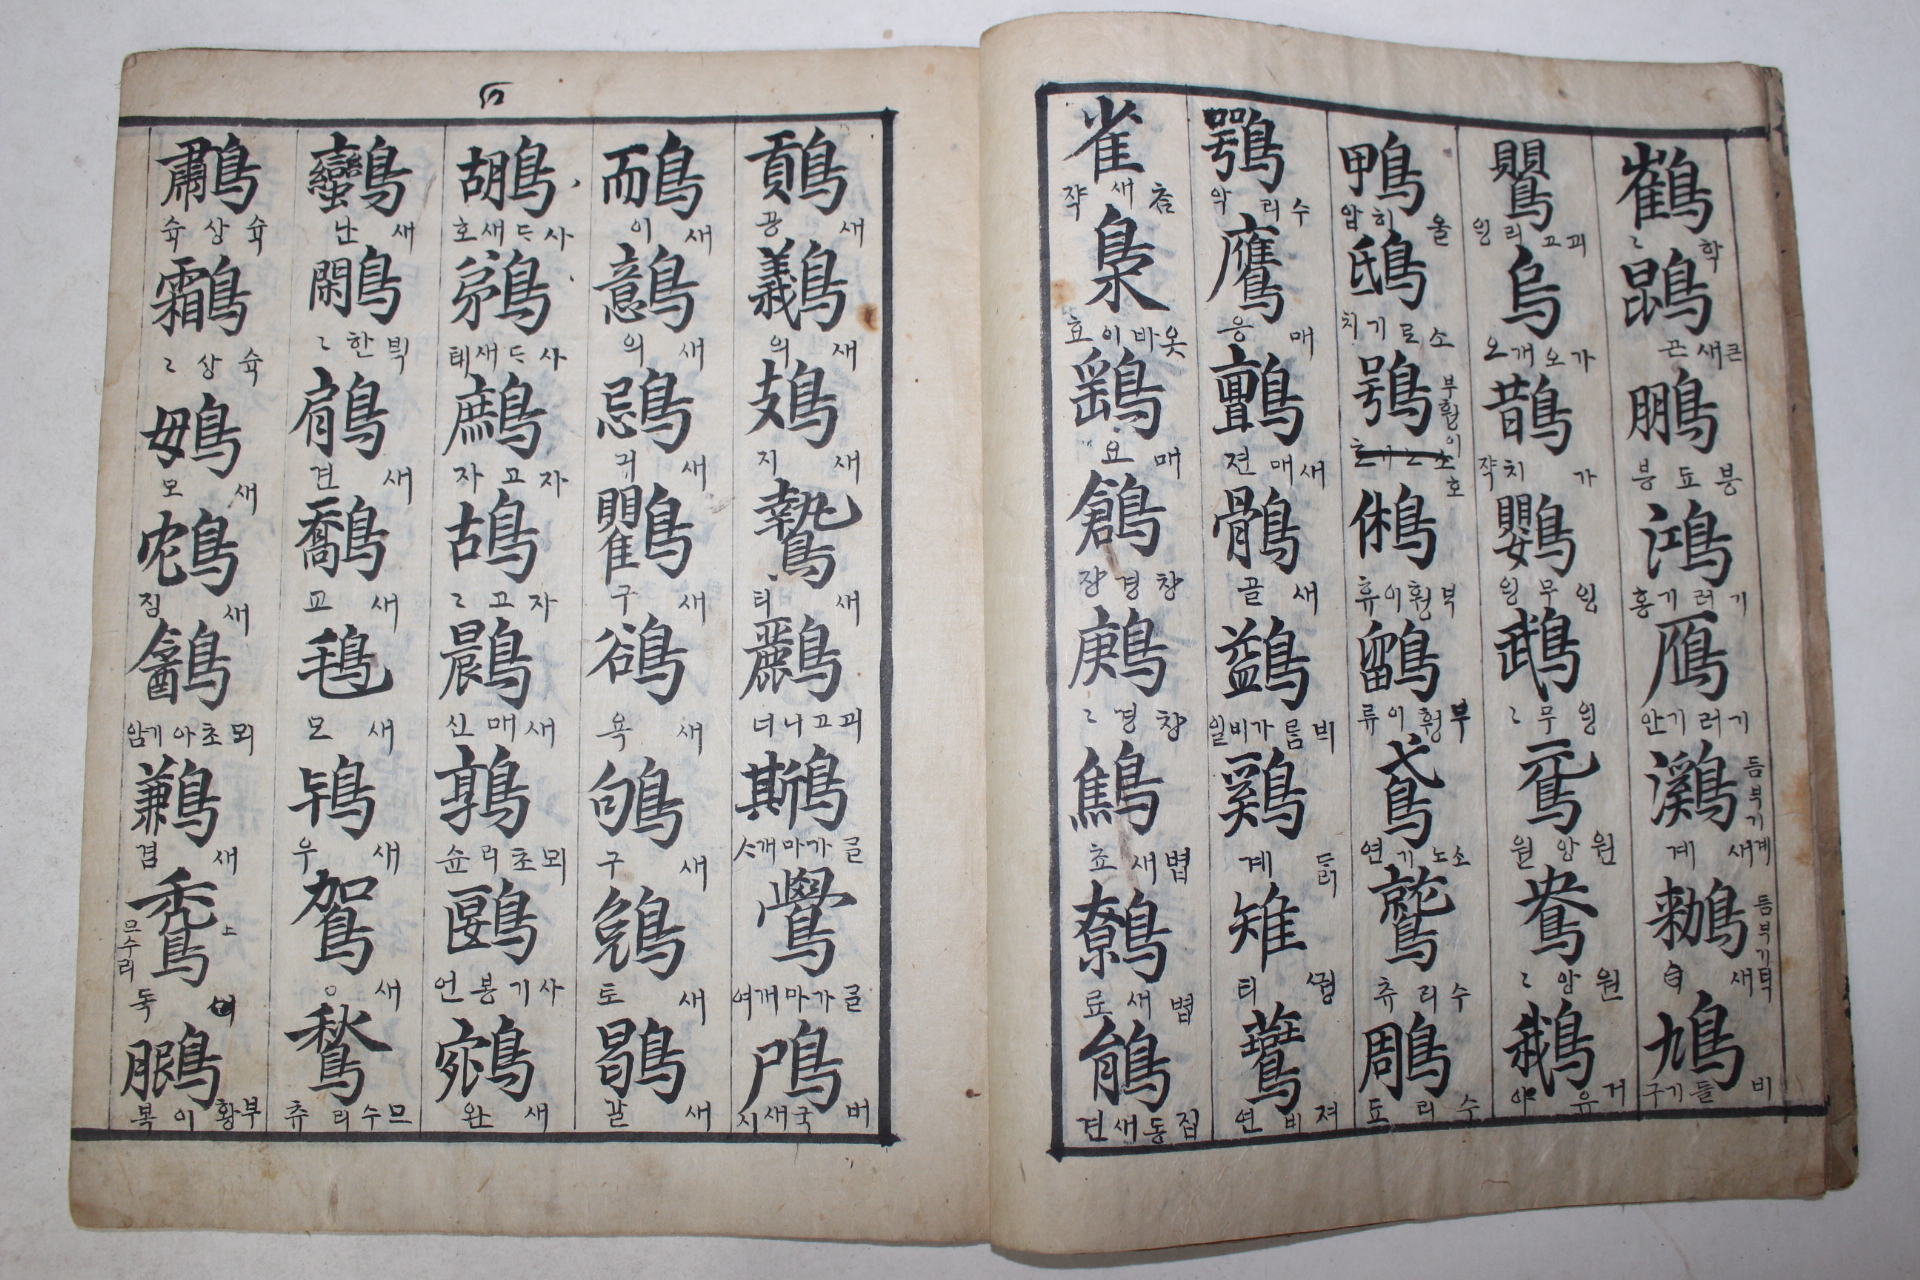 鶴 학〻 鵾 큰새곤 鵬 붕됴붕 鴻 기러기홍 鴈 기러기안 鸂 듬부기계 새계 鶆 듬부기틱 새 鳩 비들기구
鸎 꾀고리잉 烏 가오개오 鵲 가치쟉 鸚 잉무잉 鵡 잉무〻 鴛 원앙원 鴦 원앙〻 鵝 거유아
鴨 올히압 鴟 소로기치 鴞 부훵이호 鵂 부훵이휴 鶹 부훵이류 鳶 소노기연 鷲 수리츄 鵰 수리됴
鶚 수리악 鷹 매응 鸇 새매젼 鶻 새골 鷁 비름가비일 鷄 계 雉 티 鷰 져비연
雀 참새쟉 梟 옷바이효 鷂 매요 鶬 창경쟝 鶊 창경〻 鷦 볍새쵸 鷯 볍새료 鵳 집동새견
새공 鸃 새의 鳷 새지 鷙 새티 鸝 꾀고니녀 글가마개스 鷽 글가마개여 鳲 버국새시
鴯 새이 鷾 새의 鵋 새긔 鸜 새구 鵒 새욕 鴝 새구 鵵 새토 鶡 새갈
鶘 사드새호 鵜 사드새톄 鷓 자고자 鴣 자고〻 鷐 새매신 鶉 뫼초리슌 鶠 사기봉언 鵷 새완
새난 鷴 븩한〻 鵳 새견 鷮 새교 새모 새우 鴐 새 鶖 므수리츄
鷫 슉상슉 鸘 슉상〻 새모 鴆 새짐 뫼초아기암 鶼 새겸 鵚 므수리 독 鵩 부황이복